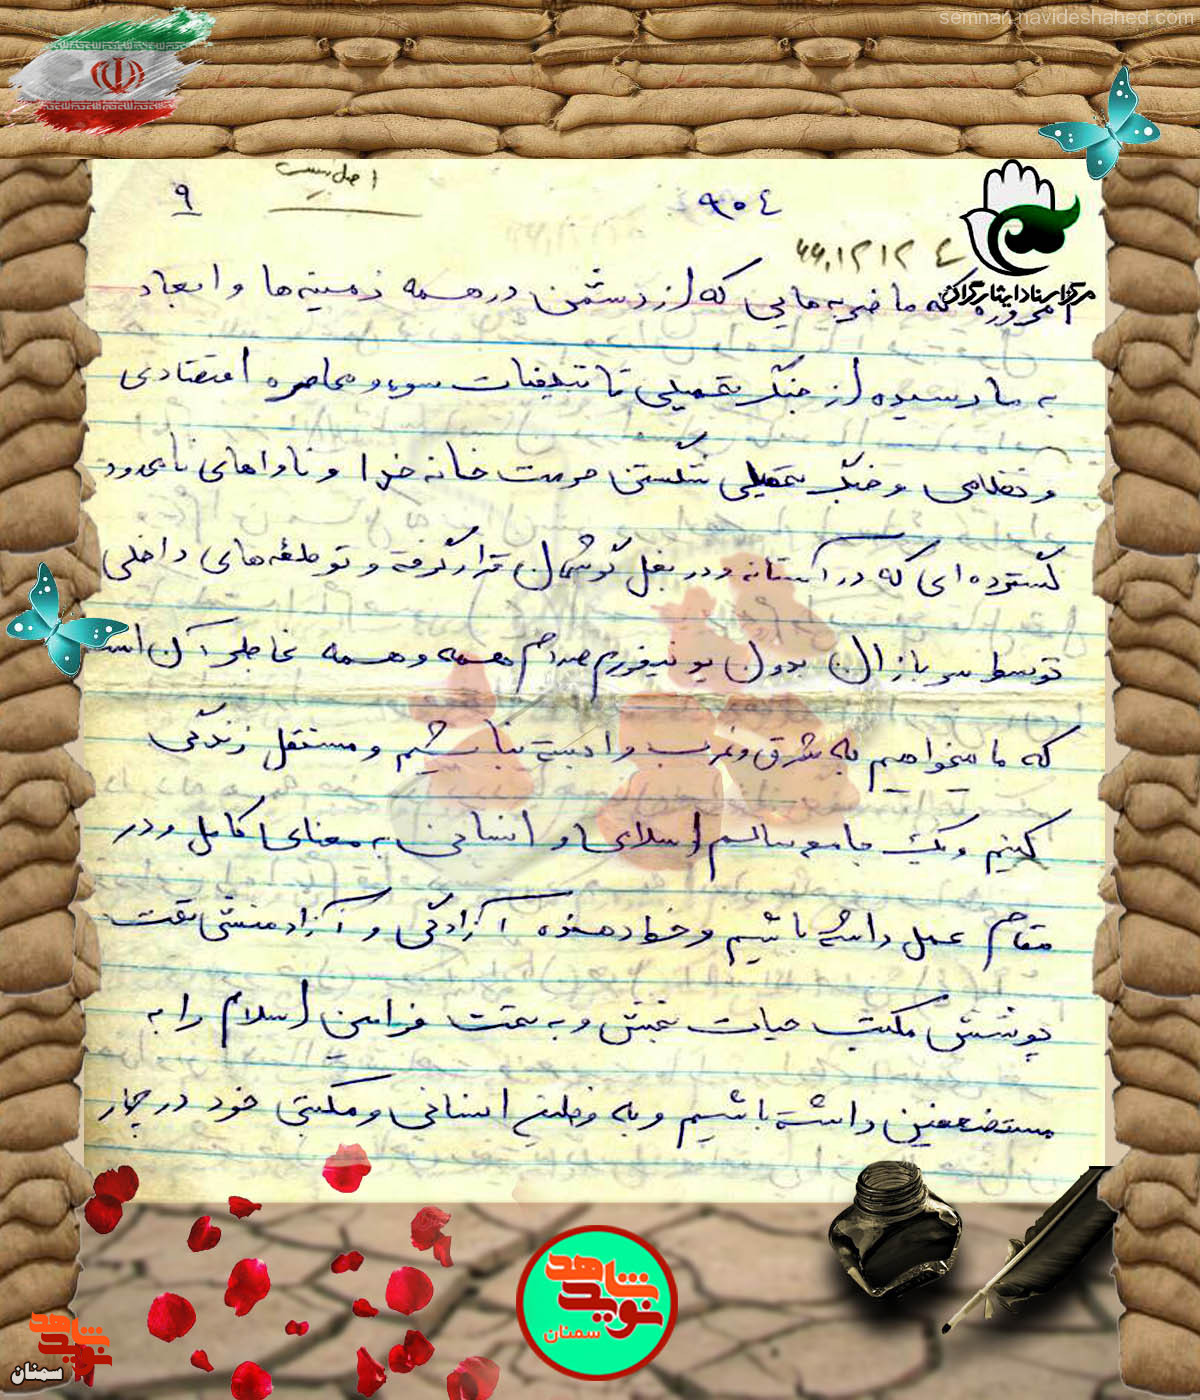 semnan.navideshahed.com
اصل نیست
۹
۹۰۴
۶۶،۱۲۱۲ ٤
مرکز اسناد ایثارگران
امروزه که ما ضربه هایی که از دشمن در همه زمینه ها و ابعاد
به ما رسیده از جنگ تحمیلی تا تبلیغات سوء و محاصره اقتصادی
و نظامی و جنگ تحمیلی شکستن حرمت خانه خدا و ناوهای نامحدود
گسترده ای که در آستانه و در بغل گوشمان قرار گرفته و توطئه های داخلی
توسط سربازان بدون یونیفورم صدام همه و همه بخاطر آن است
که ما میخواهیم به شرق و غرب وابسته نباشیم و مستقل زندگی
کنیم و یک جامعه سالم اسلامی و انسانی به معنای کامل و در
مقام عمل داشته باشیم و خط دهنده آزادگی و آزادمنشی تحت
پوشش مکتب حیات بخش و به تحت فرامین اسلام را به
مستضعفین داشته باشیم و به وظیفه انسانی و مکتبی خود در چهار
شاهد
نوید
سمنان
شاهد
نوید
سمنان